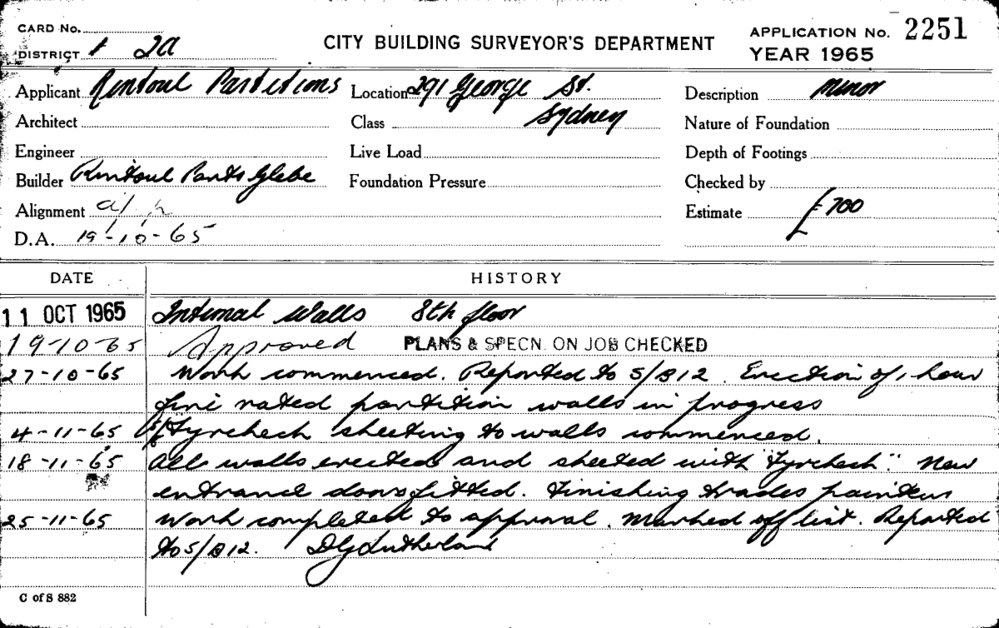 CARD No.
DISTRICT 1 2a
CITY BUILDING SURVEYOR'S DEPARTMENT
APPLICATION No. 2251
YEAR 1965
Applicant Rintoul Partitions
Location 291 George St.
Sydney
Description Minor
Architect
Class
Nature of Foundation
Engineer
Live Load
Depth of Footings
Builder Rintoul Parts Glebe
Foundation Pressure
Checked by
Alignment
Estimate £700
D.A. 19-10-65
DATE HISTORY
11 OCT 1965 Internal Walls 8th floor
19-10-65 Approved PLANS & SPECN. ON JOB CHECKED
27-10-65 Work commenced. Reported to S/B12. Erection of 1 hour
fire rated partition walls in progress
4-11-65 "Fyrchech sheeting to walls commenced.
18-11-65 All walls erected and sheeted with "Fyrchech". New
entrance doors fitted. Finishing trades painters
25-11-65 Work completed to approval. Marked off list. Reported
to S/B12. DG Sutherland
C of S 882